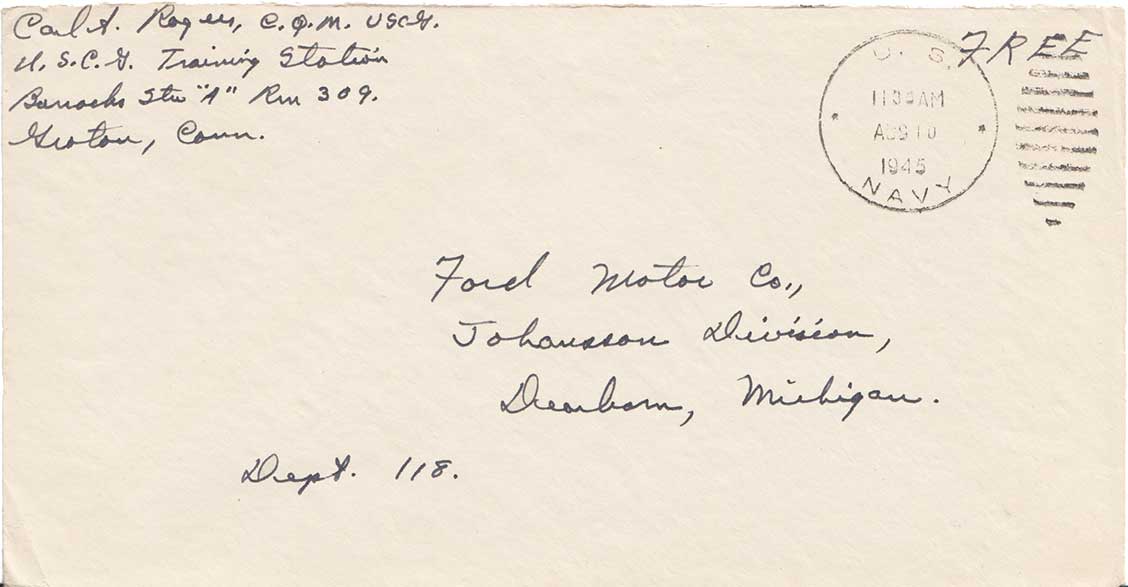 Carl A. Rogers, C.Q.M. USCG.
U.S.C.G. Training Station
Barracks Stu "A" Rm 309.
Groton, Conn.
FREE
U. S.
AM
AUG 10
1945
NAVY
Ford Motor Co.,
Johansson Division,
Dearborn, Michigan.
Dept. 118.